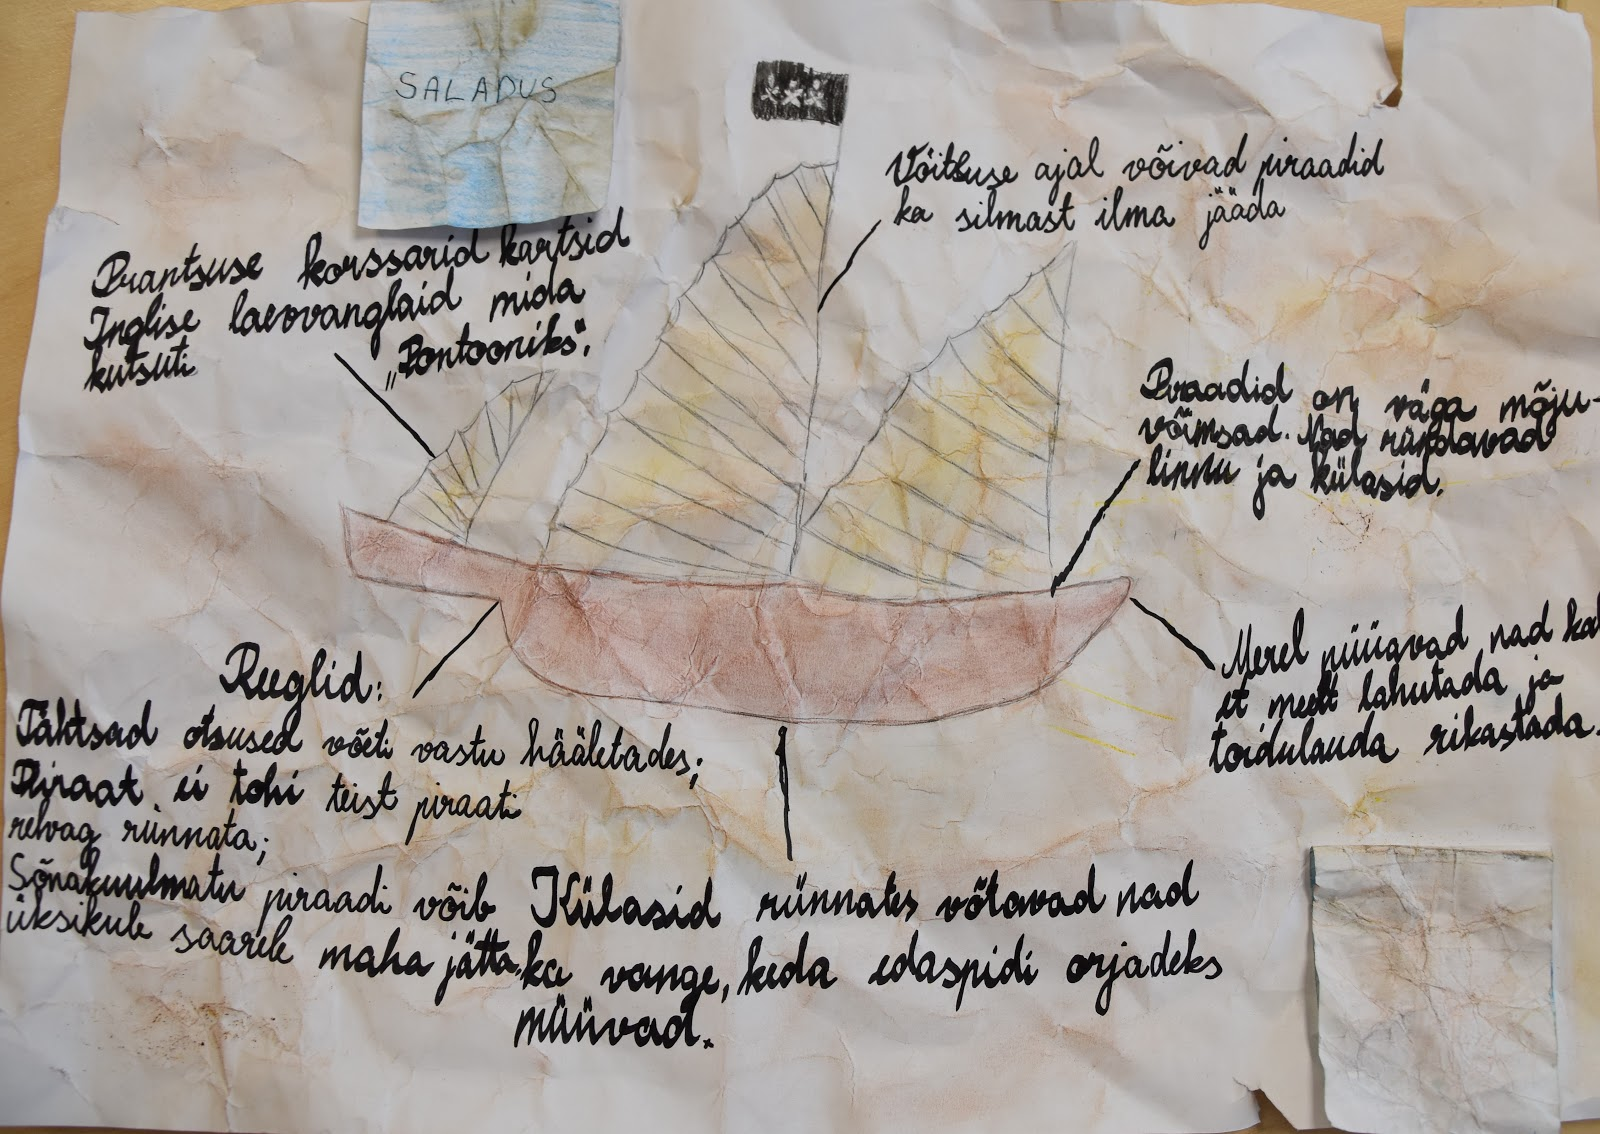 SALADUS
Võitluse ajal võivad piraadid
ka silmast ilma jääda
Prantsuse korssarid kartsid
Inglise laevvanglaid mida
kutsuti „Pontooniks".
Piraadid on väga mõju-
võimsad. Nad ründavad
linnu ja külasid.
Merel püüavad nad kal
et meelt lahutada ja
toidulauda rikastada.
Reeglid:
Tähtsad otsused võeti vastu hääletades;
Piraat ei tohi teist piraati
relvag rünnata;
Sõnakuulmatu piraadi võib
üksikule saarele maha jätta.
Külasid rünnates võtavad nad
ka vange, keda edaspidi orjadeks
müüvad.